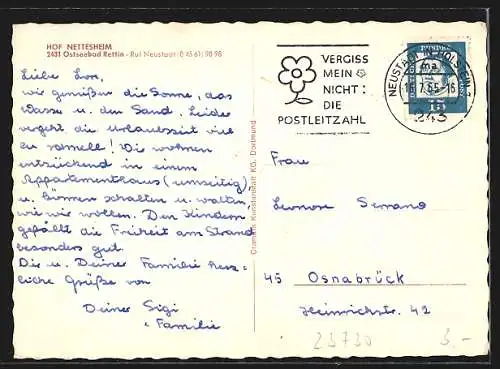 HOF NETTESHEIM
2431 Ostseebad Rettin - Ruf Neustadt (0 45 61) 98 98
Liebe Lon,
wir genießen die Sonne, das
Wasse u. den Sand. Leider
vergeht die Urlaubszeit viel
zu schnell! Wir wohnen
entzückend in einem
Appartementhaus (umseitig),
u. können schalten u. walten,
wie wir wollen. Den Kindern
gefällt die Freiheit am Strand
besonders gut.
Dir u. Deiner Familie herz-
liche Grüße von
Deiner Sigi
+ Familie
Cramers Kunstanstalt KG, Dortmund
VERGISS
MEIN
NICHT:
DIE
POSTLEITZAHL
NEUSTADT IN HOLSTEIN
ma
7.65-16
243
15
Frau
Leonore Serrano
45 Osnabrück
Heinrichstr. 42
23730
3.-